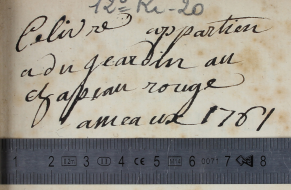 12° Kr-20
Celivre appartien
a du geardin au
chapeau rouge
a meaux 1761
1 2 3 4 5 6 7 8